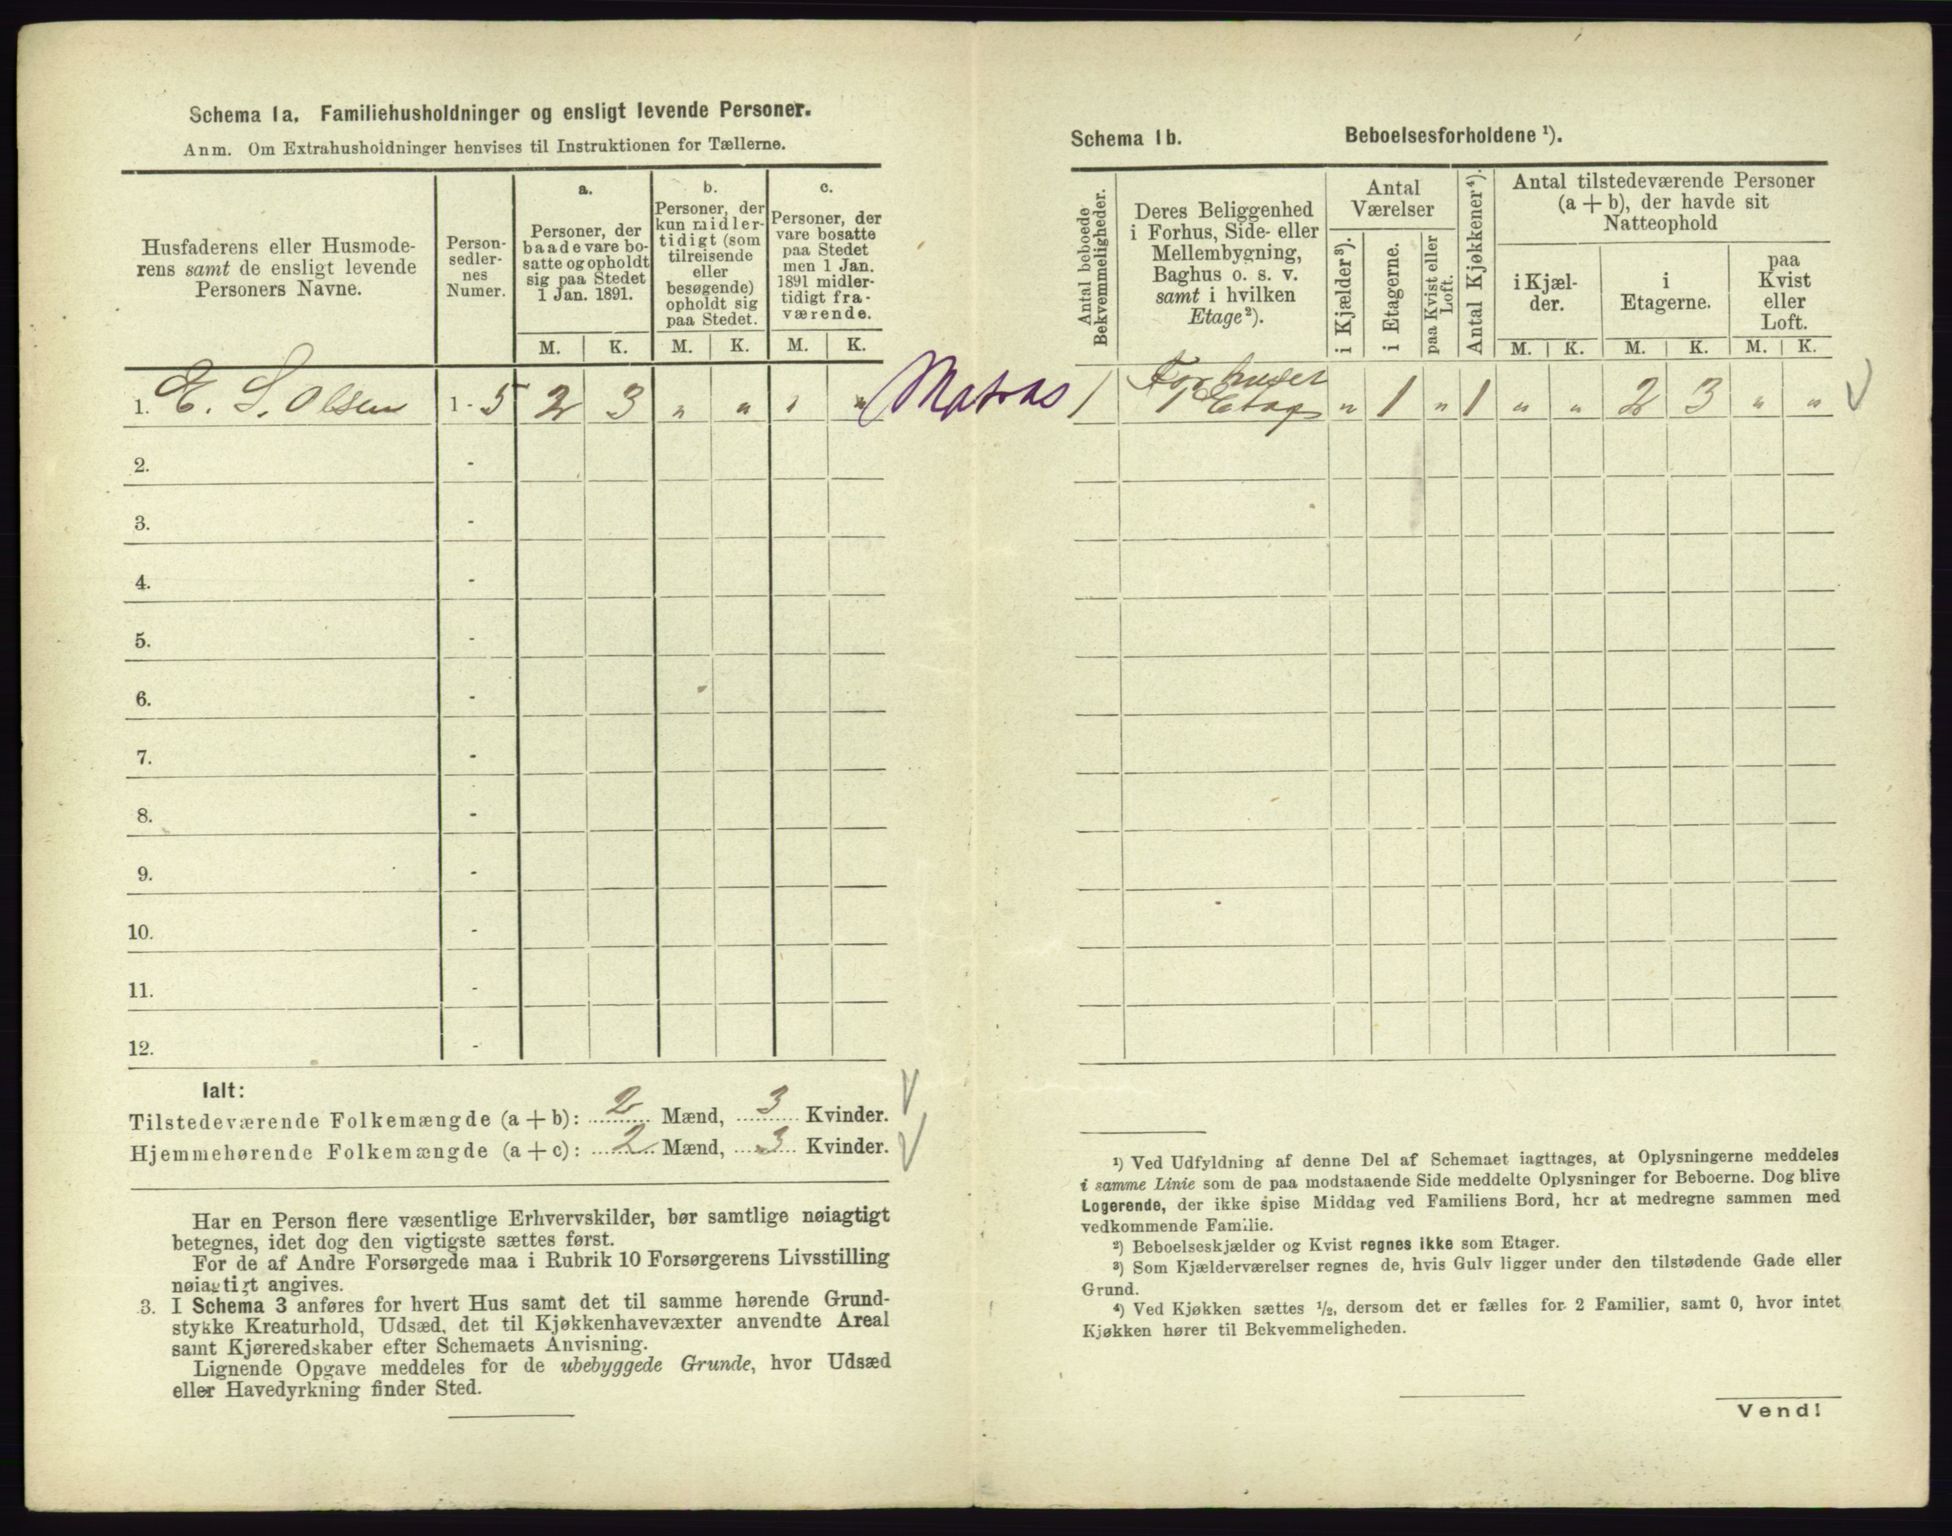 Schema 1a. Familiehusholdninger og ensligt levende Personer.
Anm. Om Extrahusholdninger henvises til Instruktionen for Tællerne.
Husfaderens eller Husmode-
rens samt de ensligt levende
Personers Navne.
Person-
sedler-
nes
Numer.
a.
Personer, der
baade vare bo-
satte og opholdt
sig paa Stedet
1 Jan. 1891.
b.
Personer, der
kun midler-
tidigt (som
tilreisende
eller
besøgende)
opholdt sig
paa Stedet.
c.
Personer, der
vare bosatte
paa Stedet
men 1 Jan.
1891 midler-
tidigt fra-
værende.
M. K. M. K. M. K.
1. E. S. Olsen 1 - 5 2 3 „ „ „ „
2. -
3. -
4. -
5. -
6. -
7. -
8. -
9. -
10. -
11. -
12. -
Ialt:
Tilstedeværende Folkemængde (a + b): 2 Mænd, 3 Kvinder.
Hjemmehørende Folkemængde (a + c): 2 Mænd, 3 Kvinder.
Har en Person flere væsentlige Erhvervskilder, bør samtlige nøiagtigt
betegnes, idet dog den vigtigste sættes først.
For de af Andre Forsørgede maa i Rubrik 10 Forsørgerens Livsstilling
nøiagtigt angives.
3. I Schema 3 anføres for hvert Hus samt det til samme hørende Grund-
stykke Kreaturhold, Udsæd, det til Kjøkkenhavevæxter anvendte Areal
samt Kjøreredskaber efter Schemaets Anvisning.
Lignende Opgave meddeles for de ubebyggede Grunde, hvor Udsæd
eller Havedyrkning finder Sted.
Schema 1b. Beboelsesforholdene ¹).
Antal beboede
Bekvemmeligheder.
Deres Beliggenhed
i Forhus, Side- eller
Mellembygning,
Baghus o. s. v.
samt i hvilken
Etage²).
Antal
Værelser
i Kjælder³).
i Etagerne.
paa Kvist eller
Loft.
Antal Kjøkkener⁴).
Antal tilstedeværende Personer
(a + b), der havde sit
Natteophold
i Kjæl-
der.
i
Etagerne.
paa
Kvist
eller
Loft.
M. K. M. K. M. K.
Matras 1 Forhuset
1 Etage „ 1 „ 1 „ „ 2 3 „ „
¹) Ved Udfyldning af denne Del af Schemaet iagttages, at Oplysningerne meddeles
i samme Linie som de paa modstaaende Side meddelte Oplysninger for Beboerne. Dog blive
Logerende, der ikke spise Middag ved Familiens Bord, her at medregne sammen med
vedkommende Familie.
²) Beboelseskjælder og Kvist regnes ikke som Etager.
³) Som Kjælderværelser regnes de, hvis Gulv ligger under den tilstødende Gade eller
Grund.
⁴) Ved Kjøkken sættes ½, dersom det er fælles for 2 Familier, samt 0, hvor intet
Kjøkken hører til Bekvemmeligheden.
Vend!